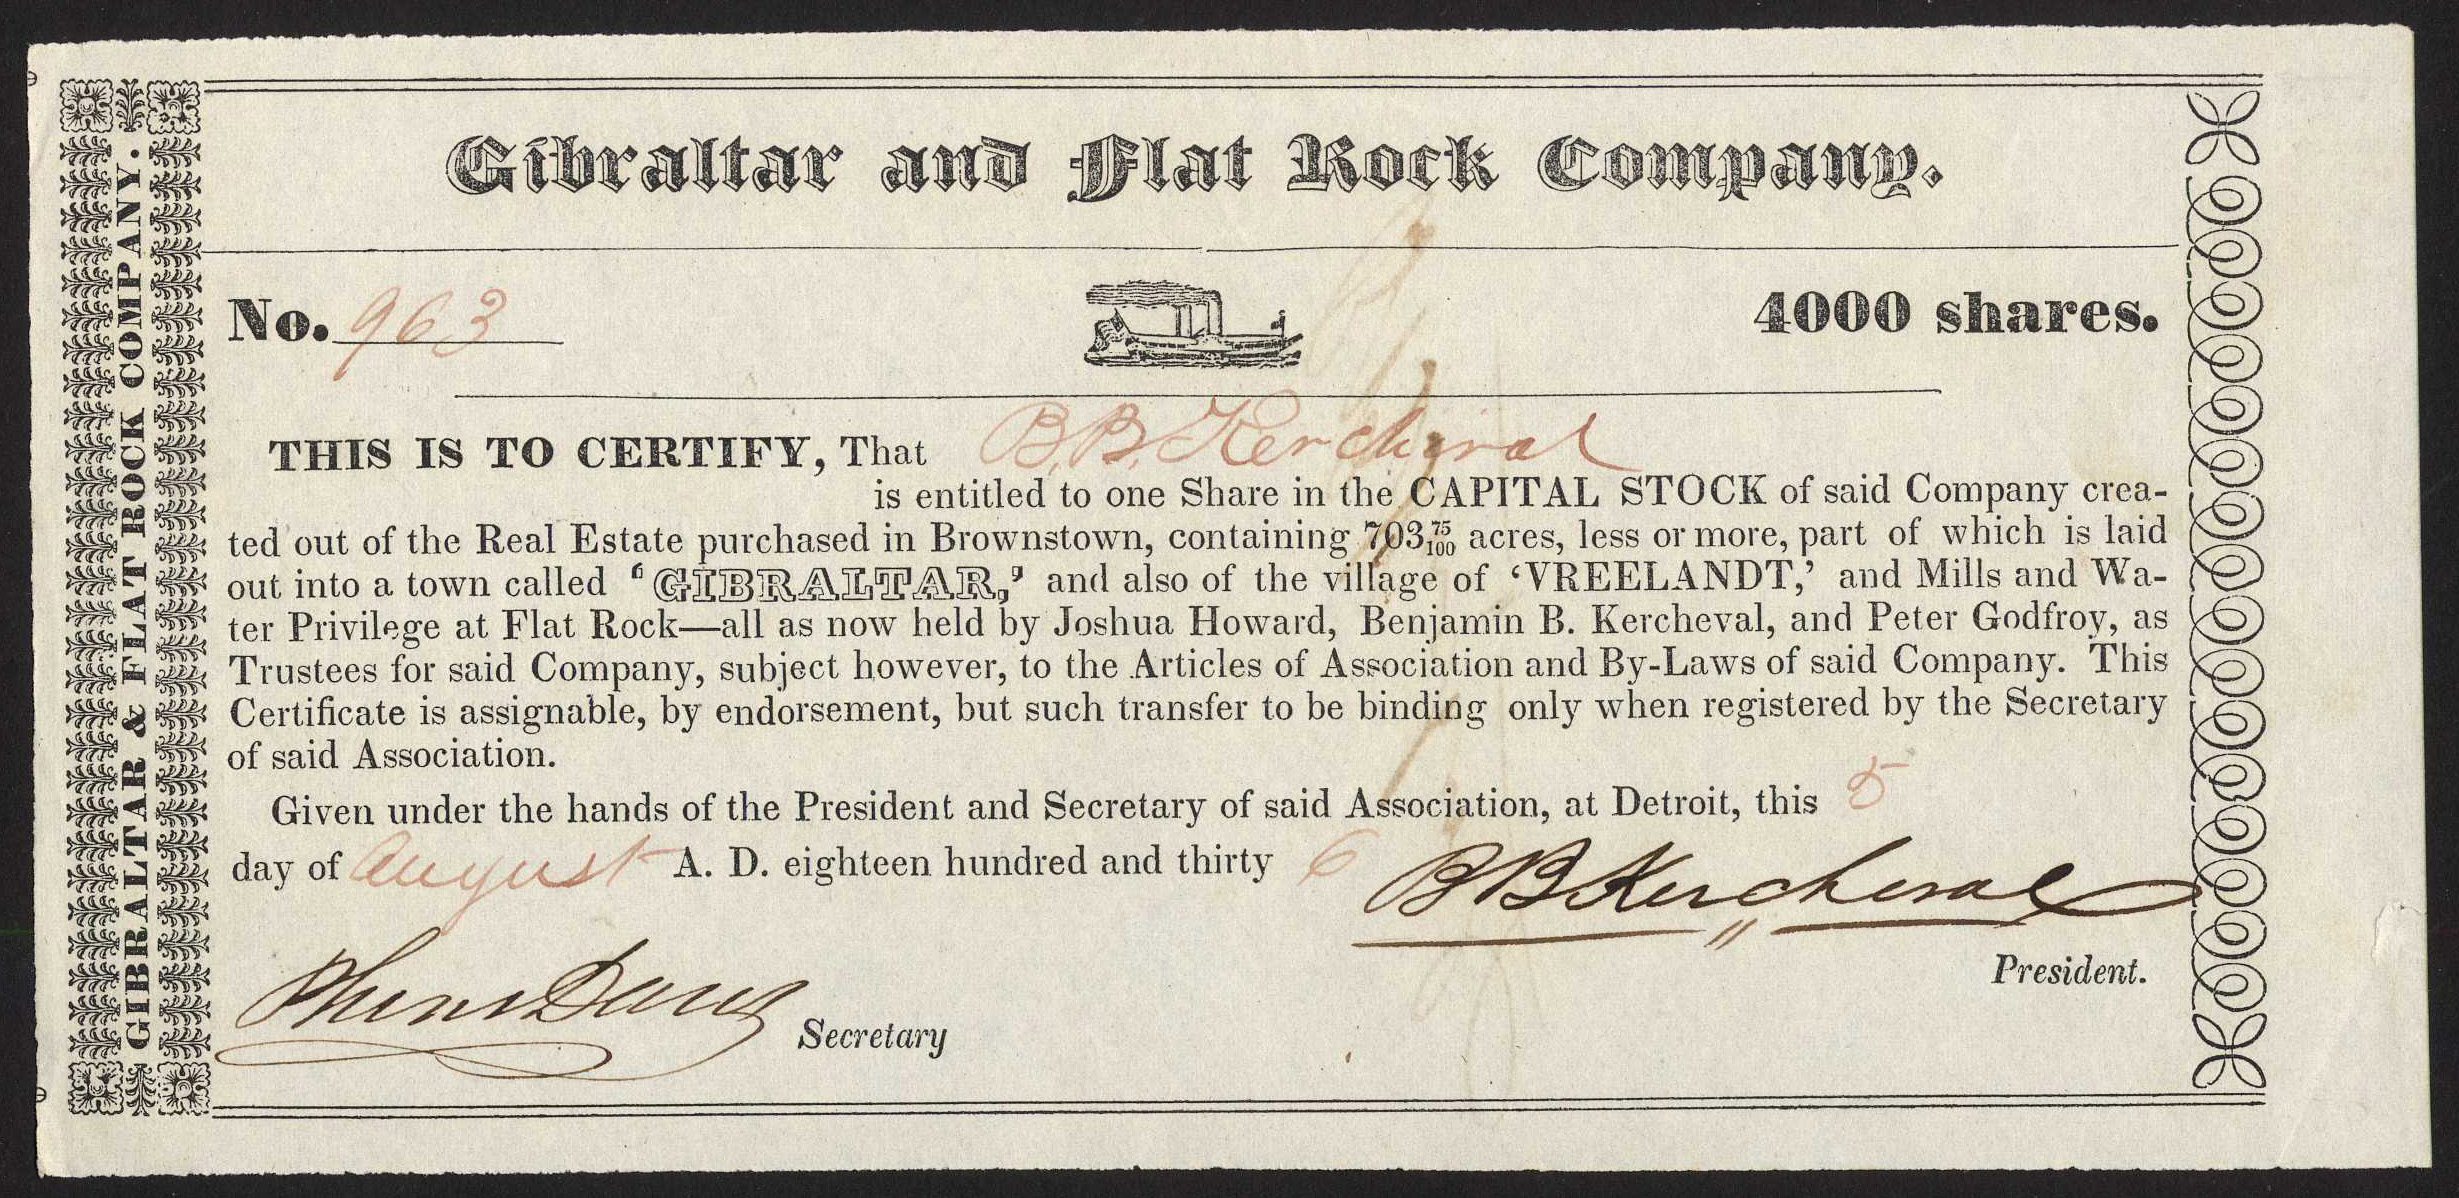 GIBRALTAR & FLAT ROCK COMPANY.
Gibraltar and Flat Rock Company.
No. 963
4000 shares.
THIS IS TO CERTIFY, That B. B. Kercheval
is entitled to one Share in the CAPITAL STOCK of said Company crea-
ted out of the Real Estate purchased in Brownstown, containing 703 75/100 acres, less or more, part of which is laid
out into a town called ‘GIBRALTAR,’ and also of the village of ‘VREELANDT,’ and Mills and Wa-
ter Privilege at Flat Rock—all as now held by Joshua Howard, Benjamin B. Kercheval, and Peter Godfroy, as
Trustees for said Company, subject however, to the Articles of Association and By-Laws of said Company. This
Certificate is assignable, by endorsement, but such transfer to be binding only when registered by the Secretary
of said Association.
Given under the hands of the President and Secretary of said Association, at Detroit, this 5
day of August A. D. eighteen hundred and thirty 6
B B Kercheval
President.
Davis
Secretary